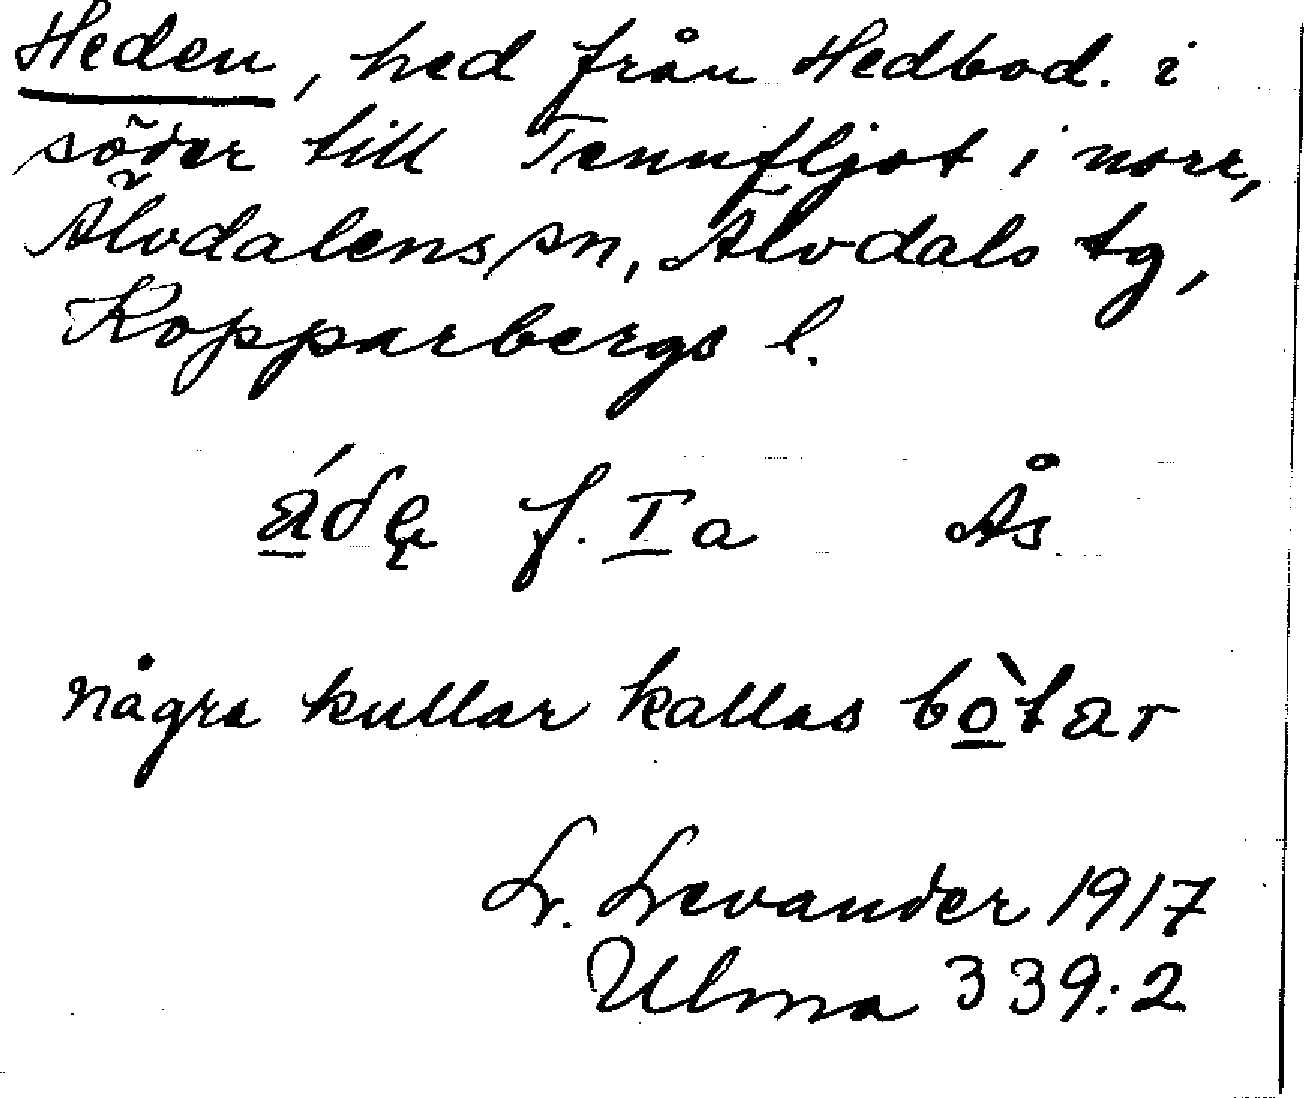 Heden, hed från Hedbod. i
söder till Tennfljot i norr,
Älvdalens sn, Älvdals tg,
Kopparbergs l.
á̱dę f. I a Ås
några kullar kallas bò̱tar
L. Levander 1917
Ulma 339:2